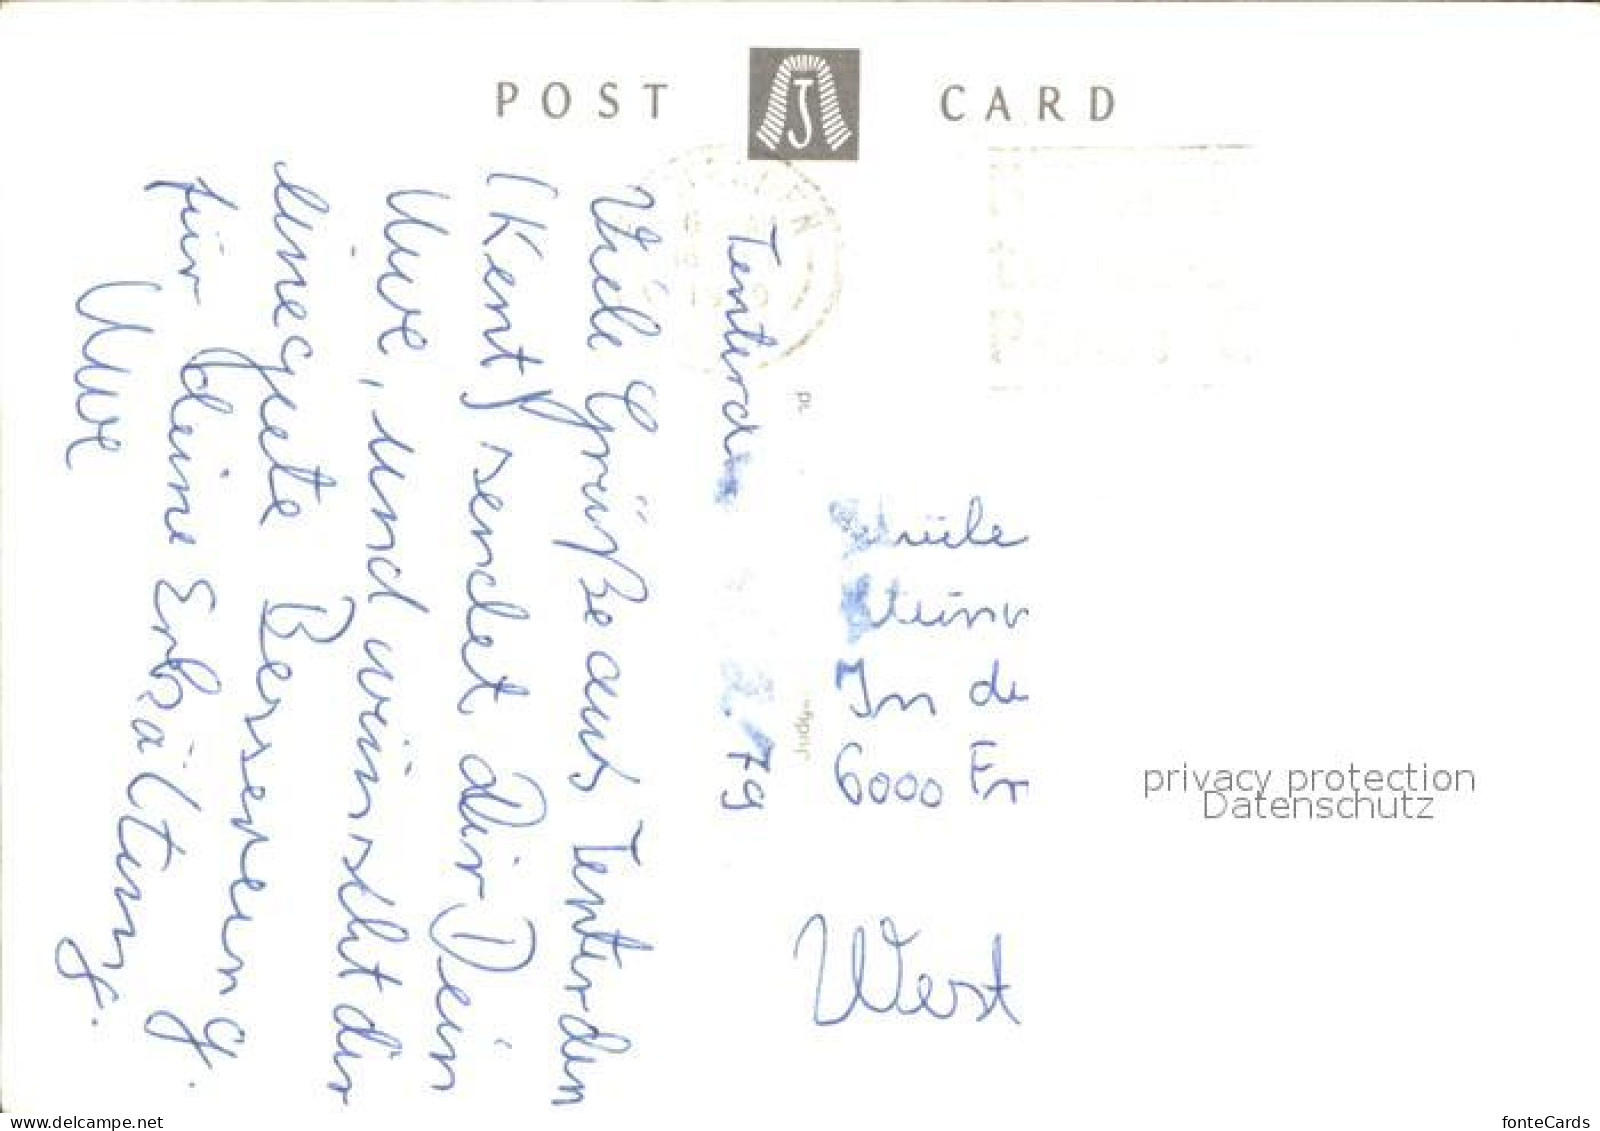 POST CARD
Tenterde
79
Viele Grüße aus Tenterden
(Kent) sendet dir Dein
Uwe, und wünscht dir
eine gute Besserung
für deine Erkältung.
Uwe
In de
6000 Fr
West
privacy protection
Datenschutz
delcampe.net
fonteCards